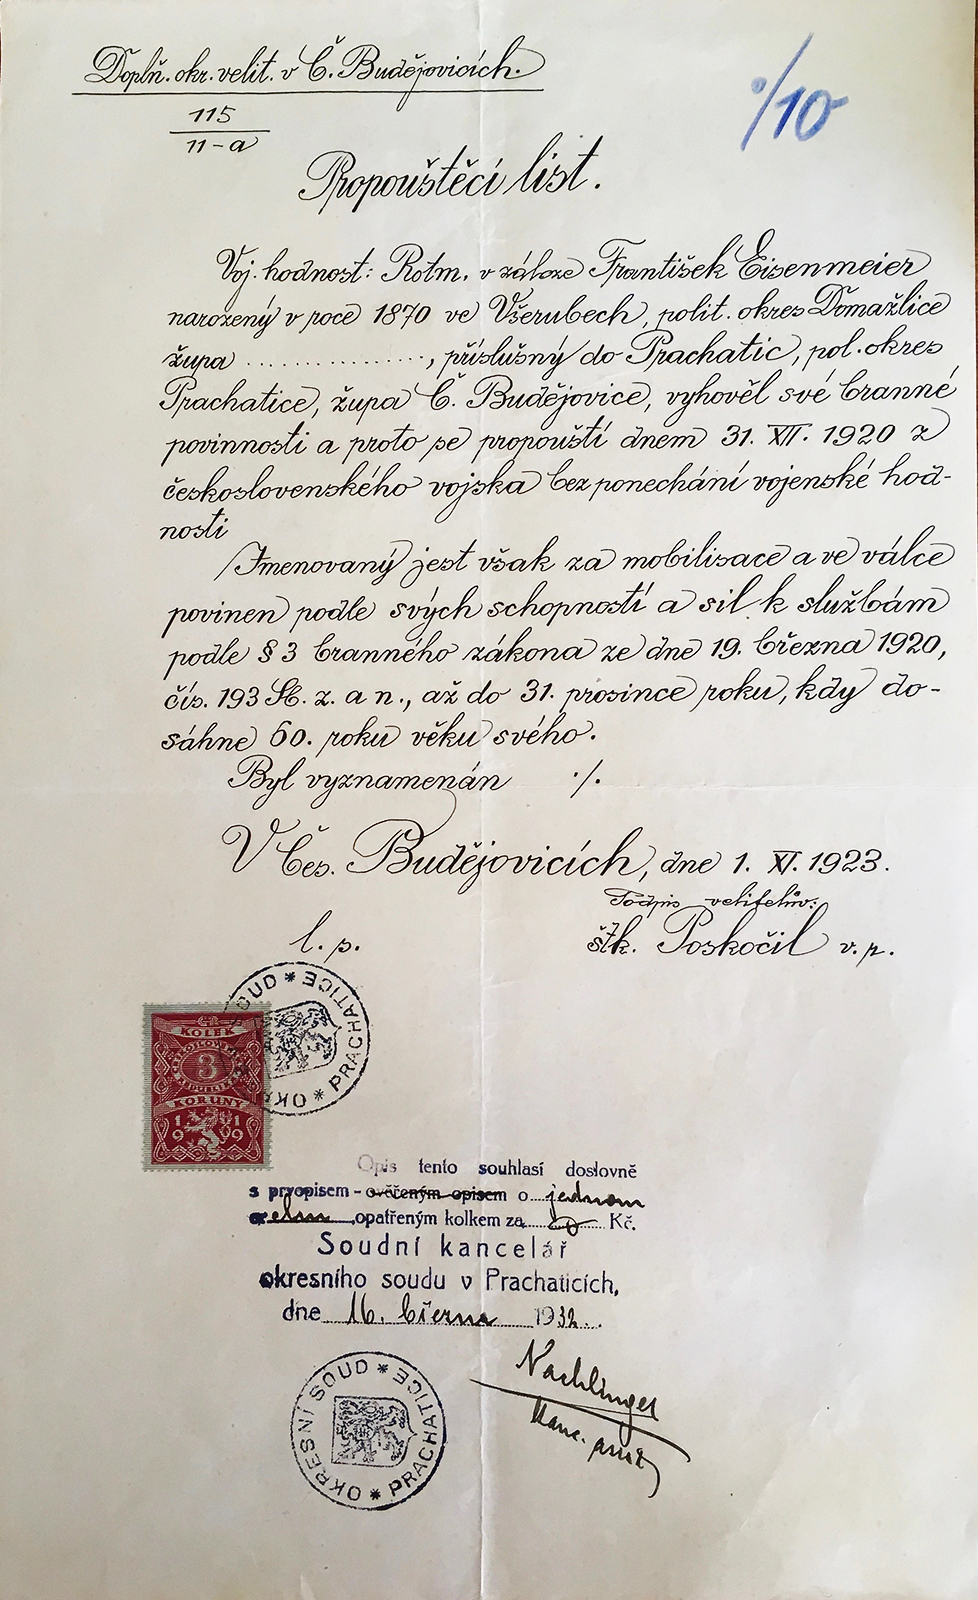 Doplň. okr. velit. v Č. Budějovicích.
115
11-a
·/10
Propouštěcí list.
Voj. hodnost: Rotm. v záloze František Eisenmeier
narozený v roce 1870 ve Všerubech, polit. okres Domažlice
župa ................., příslušný do Prachatic, pol. okres
Prachatice, župa Č. Budějovice, vyhověl své branné
povinnosti a proto se propouští dnem 31. XII. 1920 z
československého vojska bez ponechání vojenské hod-
nosti
Jmenovaný jest však za mobilisace a ve válce
povinen podle svých schopností a sil k službám
podle § 3 branného zákona ze dne 19. března 1920,
čís. 193 Sb. z. a n., až do 31. prosince roku, kdy do-
sáhne 60. roku věku svého.
Byl vyznamenán ·/.
V Čes. Budějovicích, dne 1. XI. 1923.
Podpis velitelův:
l. p.
štk. Poskočil v. r.
OKRESNÍ SOUD * PRACHATICE *
KOLEK
3
KORUNY
1919
Opis tento souhlasí doslovně
s prvopisem - ověřeným opisem o jednom
archu, opatřeným kolkem za Kč.
Soudní kancelář
okresního soudu v Prachaticích,
dne 16. března 1932.
OKRESNÍ SOUD * PRACHATICE *
Nachlinger